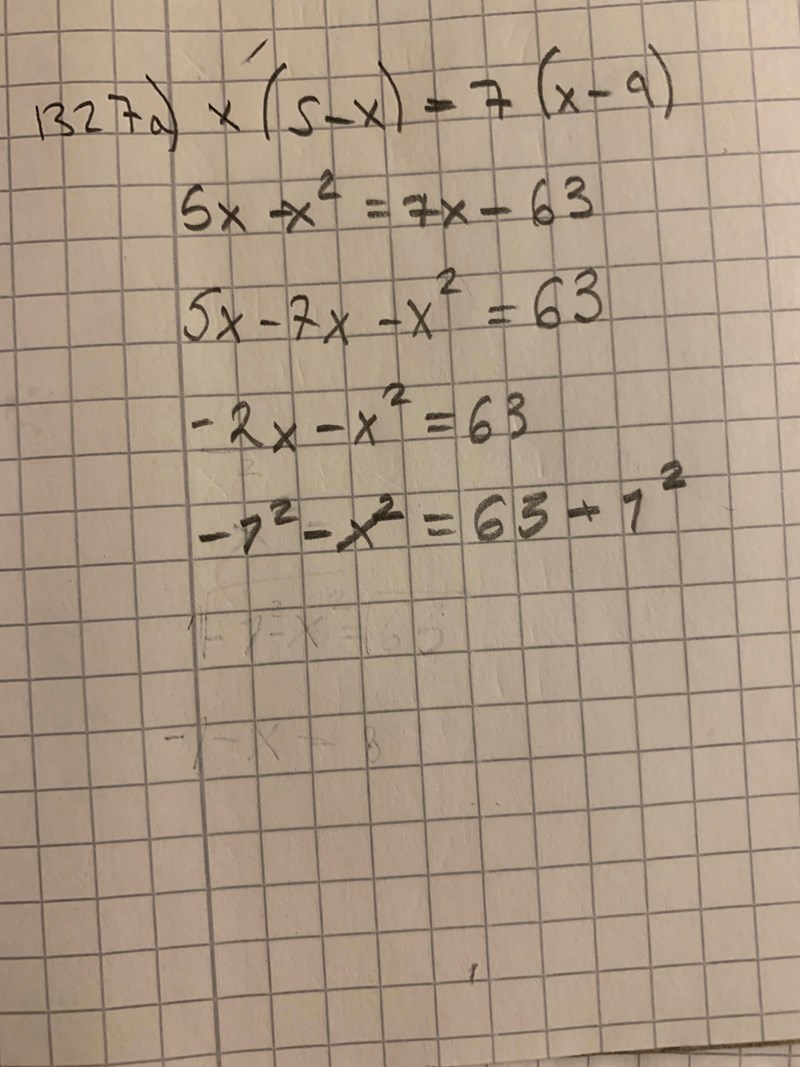 1327a) x(5-x) = 7(x-9)
5x -x² = 7x - 63
5x - 7x - x² = 63
-2x - x² = 63
-1² - x² = 63 + 1²